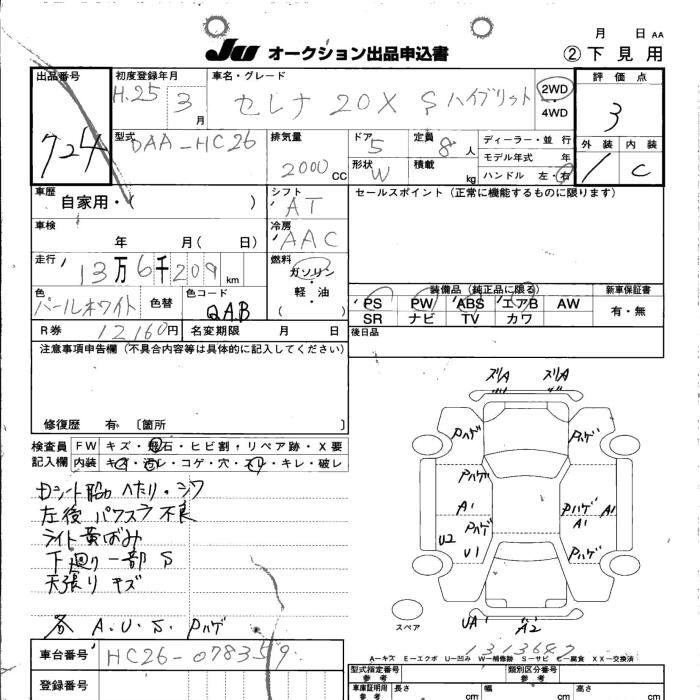 月 日 AA
JU オークション出品申込書 ②下見用
出品番号 初度登録年月 車名・グレード 評価点
724 H.25 3月 セレナ 20X S ハイブリット 2WD 4WD 3
型式 排気量 ドア 定員 ディーラー・並行 外装 内装
DAA-HC26 2000cc 5 8人 モデル年式 年
形状 W 積載 kg ハンドル 左・右 C
車歴 シフト セールスポイント（正常に機能するものに限ります）
自家用・（ ） AT
車検 冷房
年 月（ 日） AAC
走行 燃料
13万6千209km ガソリン・軽・油
装備品（純正品に限る） 新車保証書
色 色替 色コード （ ） PS PW ABS エアB AW 有・無
パールホワイト QAB SR ナビ TV カワ
R券 12160円 名変期限 月 日 後日品
注意事項申告欄（不具合内容等は具体的に記入してください）
修復歴 有 〔箇所 〕
検査員記入欄 FW キズ・飛石・ヒビ割・リペア跡・X要
内装 キズ・汚レ・コゲ・穴・スレ・キレ・破レ
Dシート脇 へたり・シワ
左後 パワスラ不良
ライト黄ばみ
下廻り一部 S
天張り キズ
各 A.U.S. Pハゲ
ズリA ズリA
Pハゲ Pハゲ
Pハゲ
A1 Pハゲ A1
U2 Pハゲ A1
U1 Pハゲ
UA1 A2
スペア
1313647
A－キズ E－エクボ U－凹み W－補修跡 S－サビ C－腐食 XX－交換済
車台番号 HC26-078359
登録番号
型式指定番号 類別区分番号
車庫証明用参考 長さ 幅 高さ
参考 cm cm cm